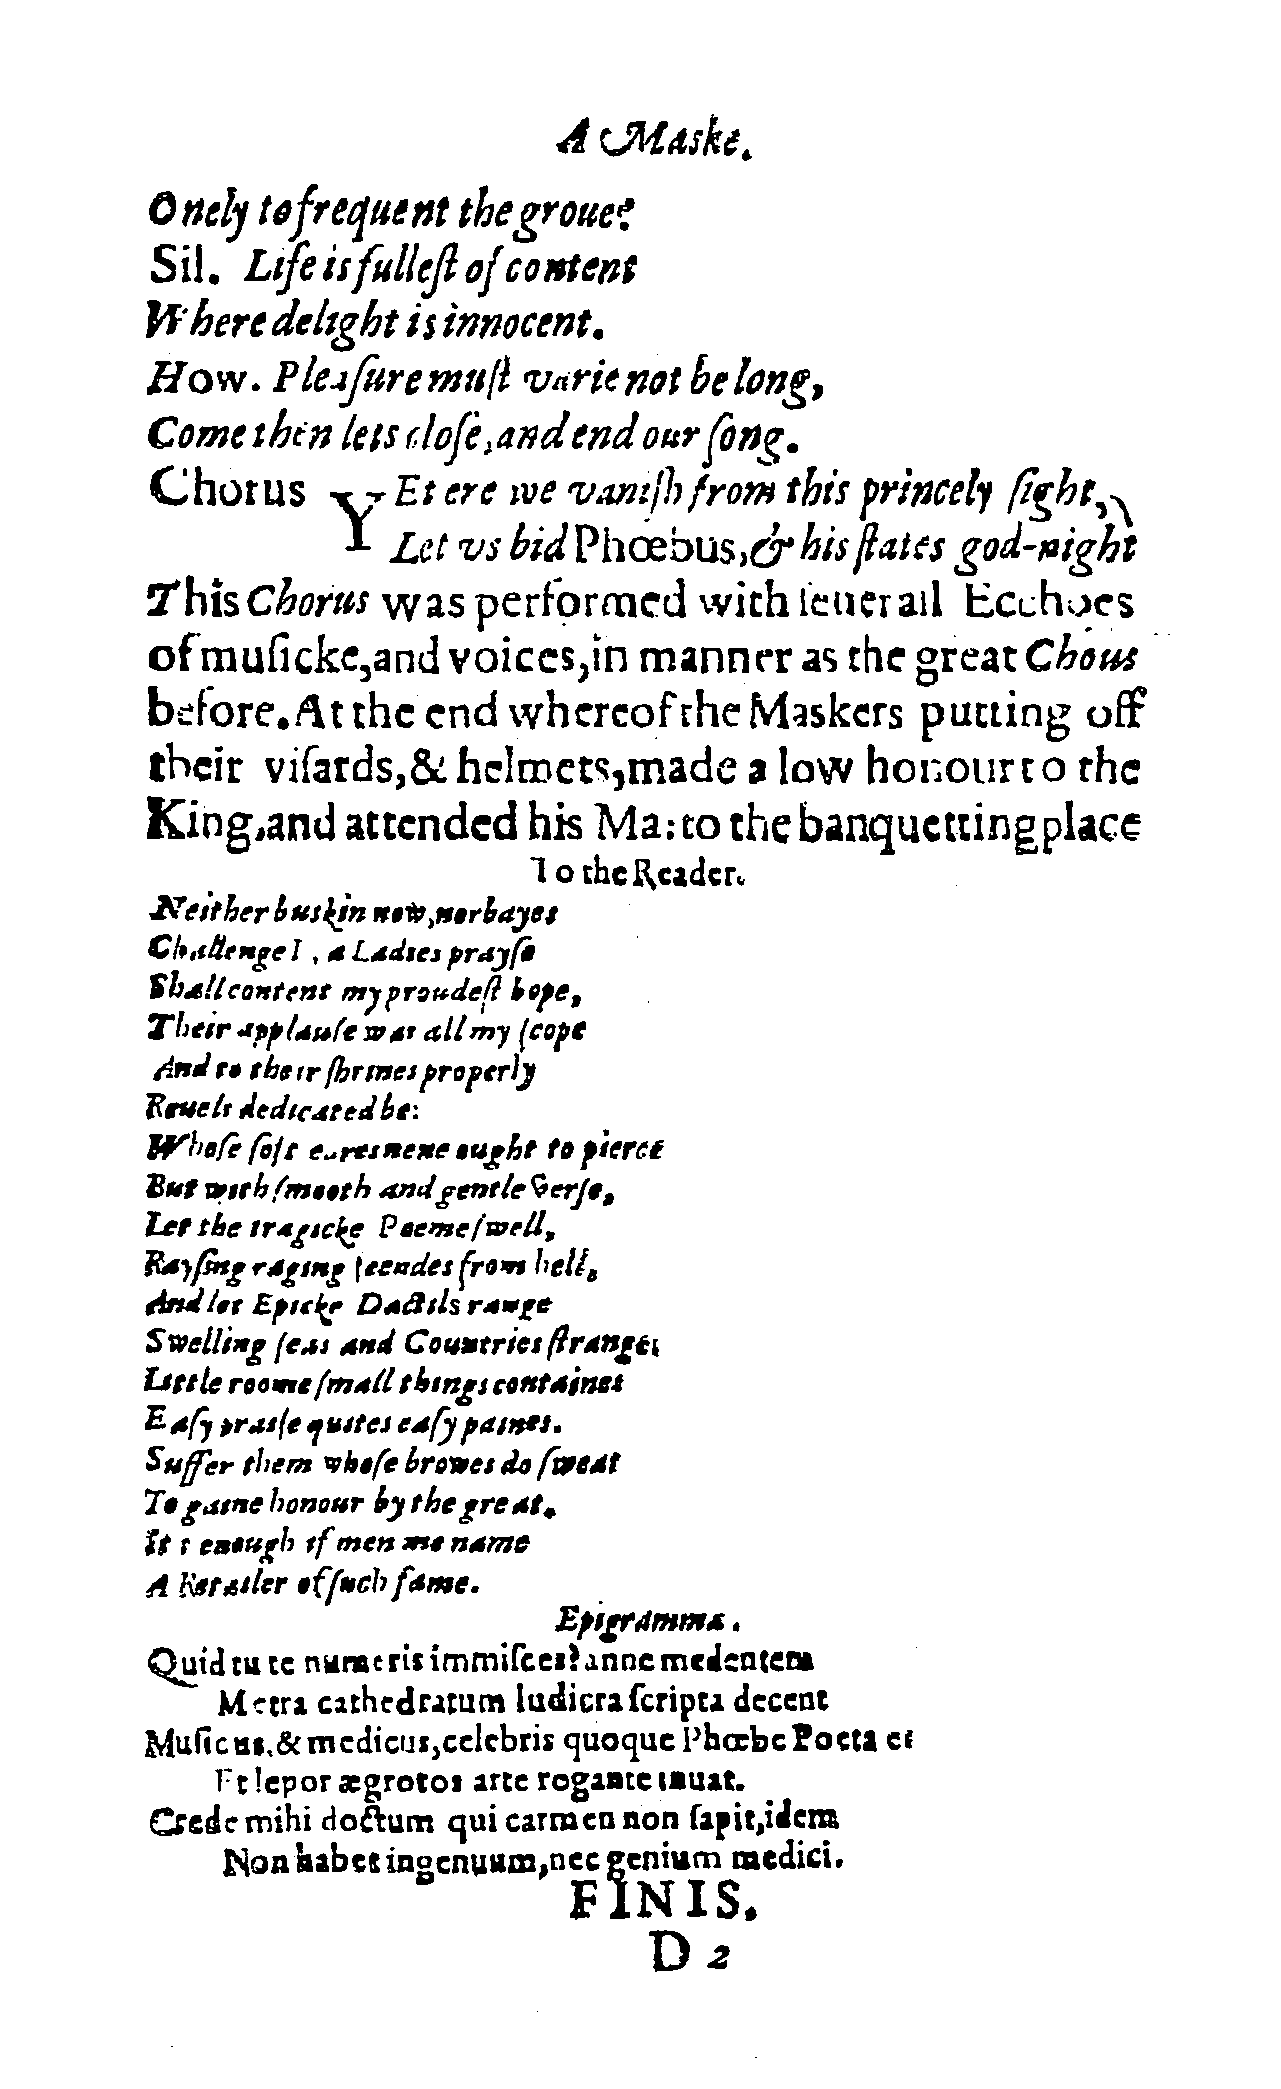 A Maske.
Onely to frequent the groue?
Sil. Life is fullest of content
Where delight is innocent.
How. Pleaſure muſt varie not be long,
Come then lets cloſe, and end our ſong.
Chorus YEt ere we vaniſh from this princely ſight,
Let vs bid Phœbus, & his ſtates god-night
This Chorus was performed with ſeuerall Ecchoes
of muſicke, and voices, in manner as the great Chous
before. At the end whereof the Maskers putting off
their viſards, & helmets, made a low honour to the
King, and attended his Ma: to the banquetting place
To the Reader.
Neither buskin now, nor bayes
Challenge I, a Ladies prayſe
Shall content my proudeſt hope,
Their applauſe was all my ſcope
And to their ſhrines properly
Reuels dedicated be:
Whoſe ſoft eares none ought to pierce
But with ſmooth and gentle verſe,
Let the tragicke Poeme ſwell,
Rayſing raging feendes from hell,
And let Epicke Dactils range
Swelling ſeas and Countries ſtrange:
Little roome ſmall things containes
Eaſy praiſe quites eaſy paines.
Suffer them whoſe browes do ſweat
To gaine honour by the great.
It s enough if men me name
A Retailer of ſuch fame.
Epigramma.
Quid tu te numeris immiſces? anne medentem
Metra cathedratum ludicra ſcripta decent
Muſicus, & medicus, celebris quoque Phœbe Poeta es
Et lepor ægrotos arte rogante iuuat.
Crede mihi doctum qui carmen non ſapit, idem
Non habet ingenuum, nec genium medici.
FINIS.
D 2